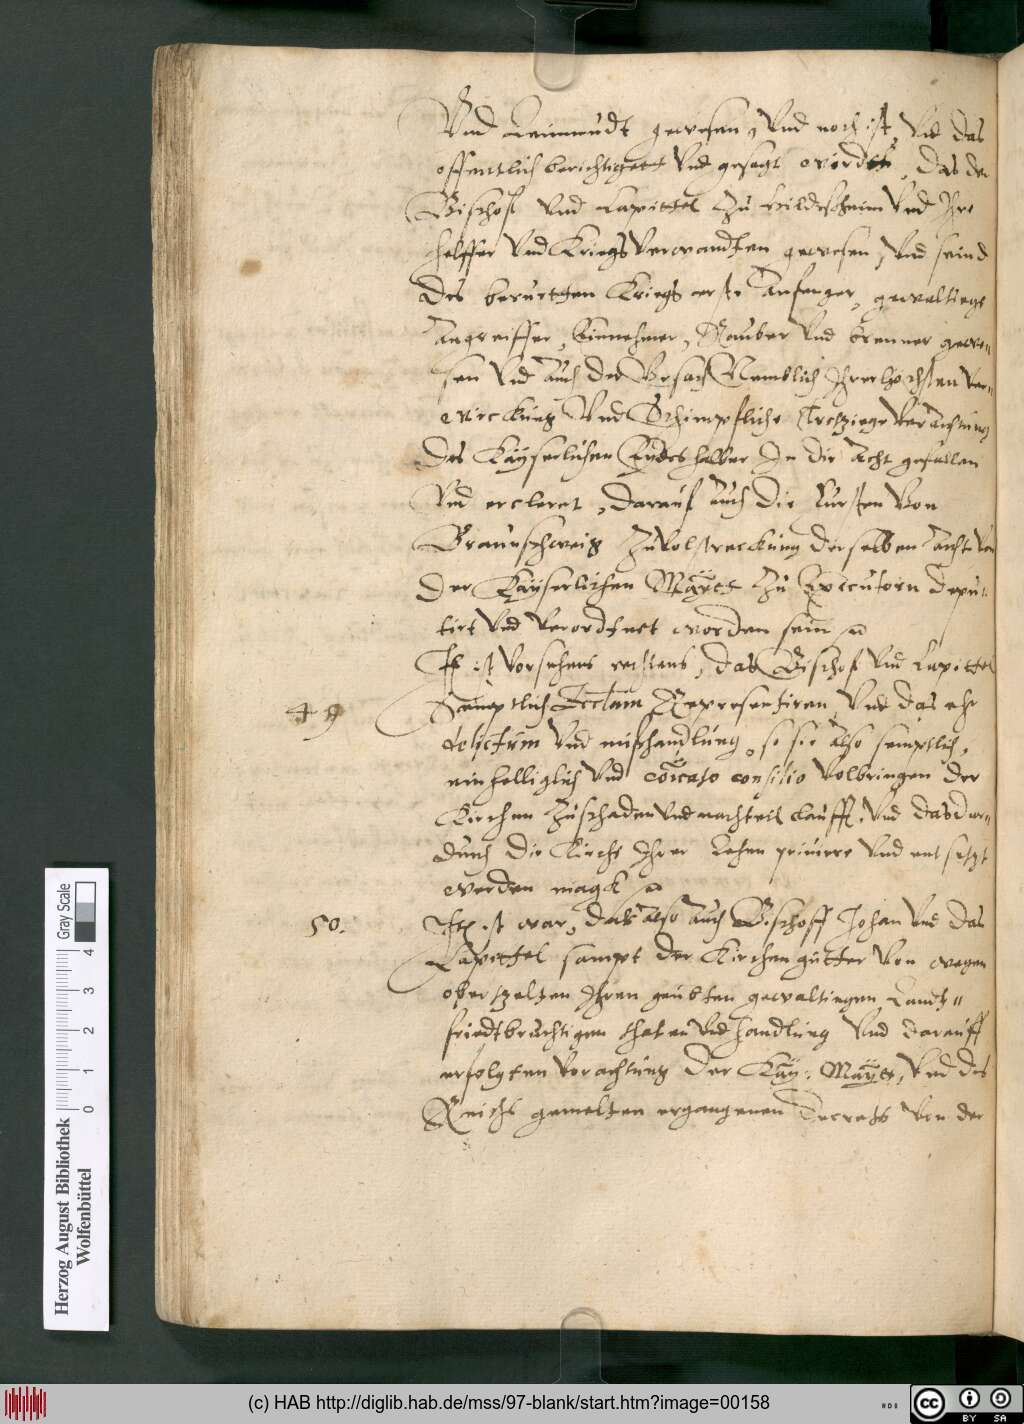 Vnd Leumundt gewesen, Vnd noch ist, Vnd das
offentlich berichtiget Vnd gesagt worden, das der
Bischoff Vnd Capittel Zu Hildeßheim Vnd Ihre
helffer Vnd Kriegs Verwandten gewesen, Vnd seind
des berurtten Kriegs erste Anfenger, gewaltiege
Angreiffer, Einnehmer, Rauber Vnd brenner gewe=
sen Vnd auch der Vrsach Nemblich Ihrer hochsten ver=
wirckung Vnd Schimpfliche Verachtung
des Kayserlichen halber In die Acht gefallen
Vnd ercleret, darauf auch die Fursten Von
Braunschweig Zu Volstreckung derselben Acht Von
der Kayserlichen Mayet Zu Executorn depu=
tirt Vnd Verordtnet worden sein
49 It ist Vorsehens rechtens, das Bischof Vnd Capittel
Samptlich Ecclam Representiren, Vnd das ehr
delictum Vnd mißhandlung, so sie also samptlich,
einhelliglich Vnd consilio Volbringen der
Kirchen Zu schaden Vnd nachteil laufft, Vnd das dar=
durch die Kirche Ihrer Lehen priuirt Vnd entsetzt
werden magk
50. Itē ist war, das also auch Bischoff Johan Vnd das
Capittel sampt der Kirchen gutter Von wegen
oberzelten Ihren geubten gewaltiegen Landt=
friedtbruchtigen thaten Vnd handlung Vnd darauff
erfolgten Vorachtung der Kay: Mayet, Vnd des
Reichs gemelten ergangenen Decrets Von der
Herzog August Bibliothek
Wolfenbüttel
Gray Scale
0 1 2 3 4
(c) HAB http://diglib.hab.de/mss/97-blank/start.htm?image=00158
cc BY SA